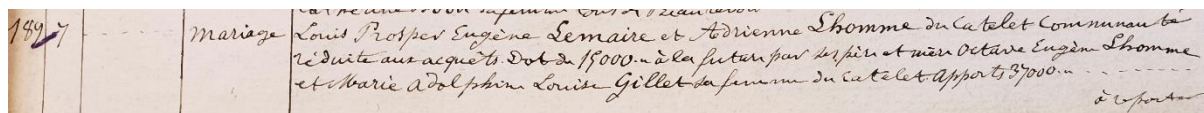 sa femme tous de Beaurevoir
1897 mariage Louis Prosper Eugène Lemaire et Adrienne Lhomme du Catelet Communauté
réduite aux acquêts. Dot de 15000 " à la future par ses père et mère Octave Eugène Lhomme
et Marie Adolphine Louise Gillet sa femme du Catelet Apports 37000 "
à reporter